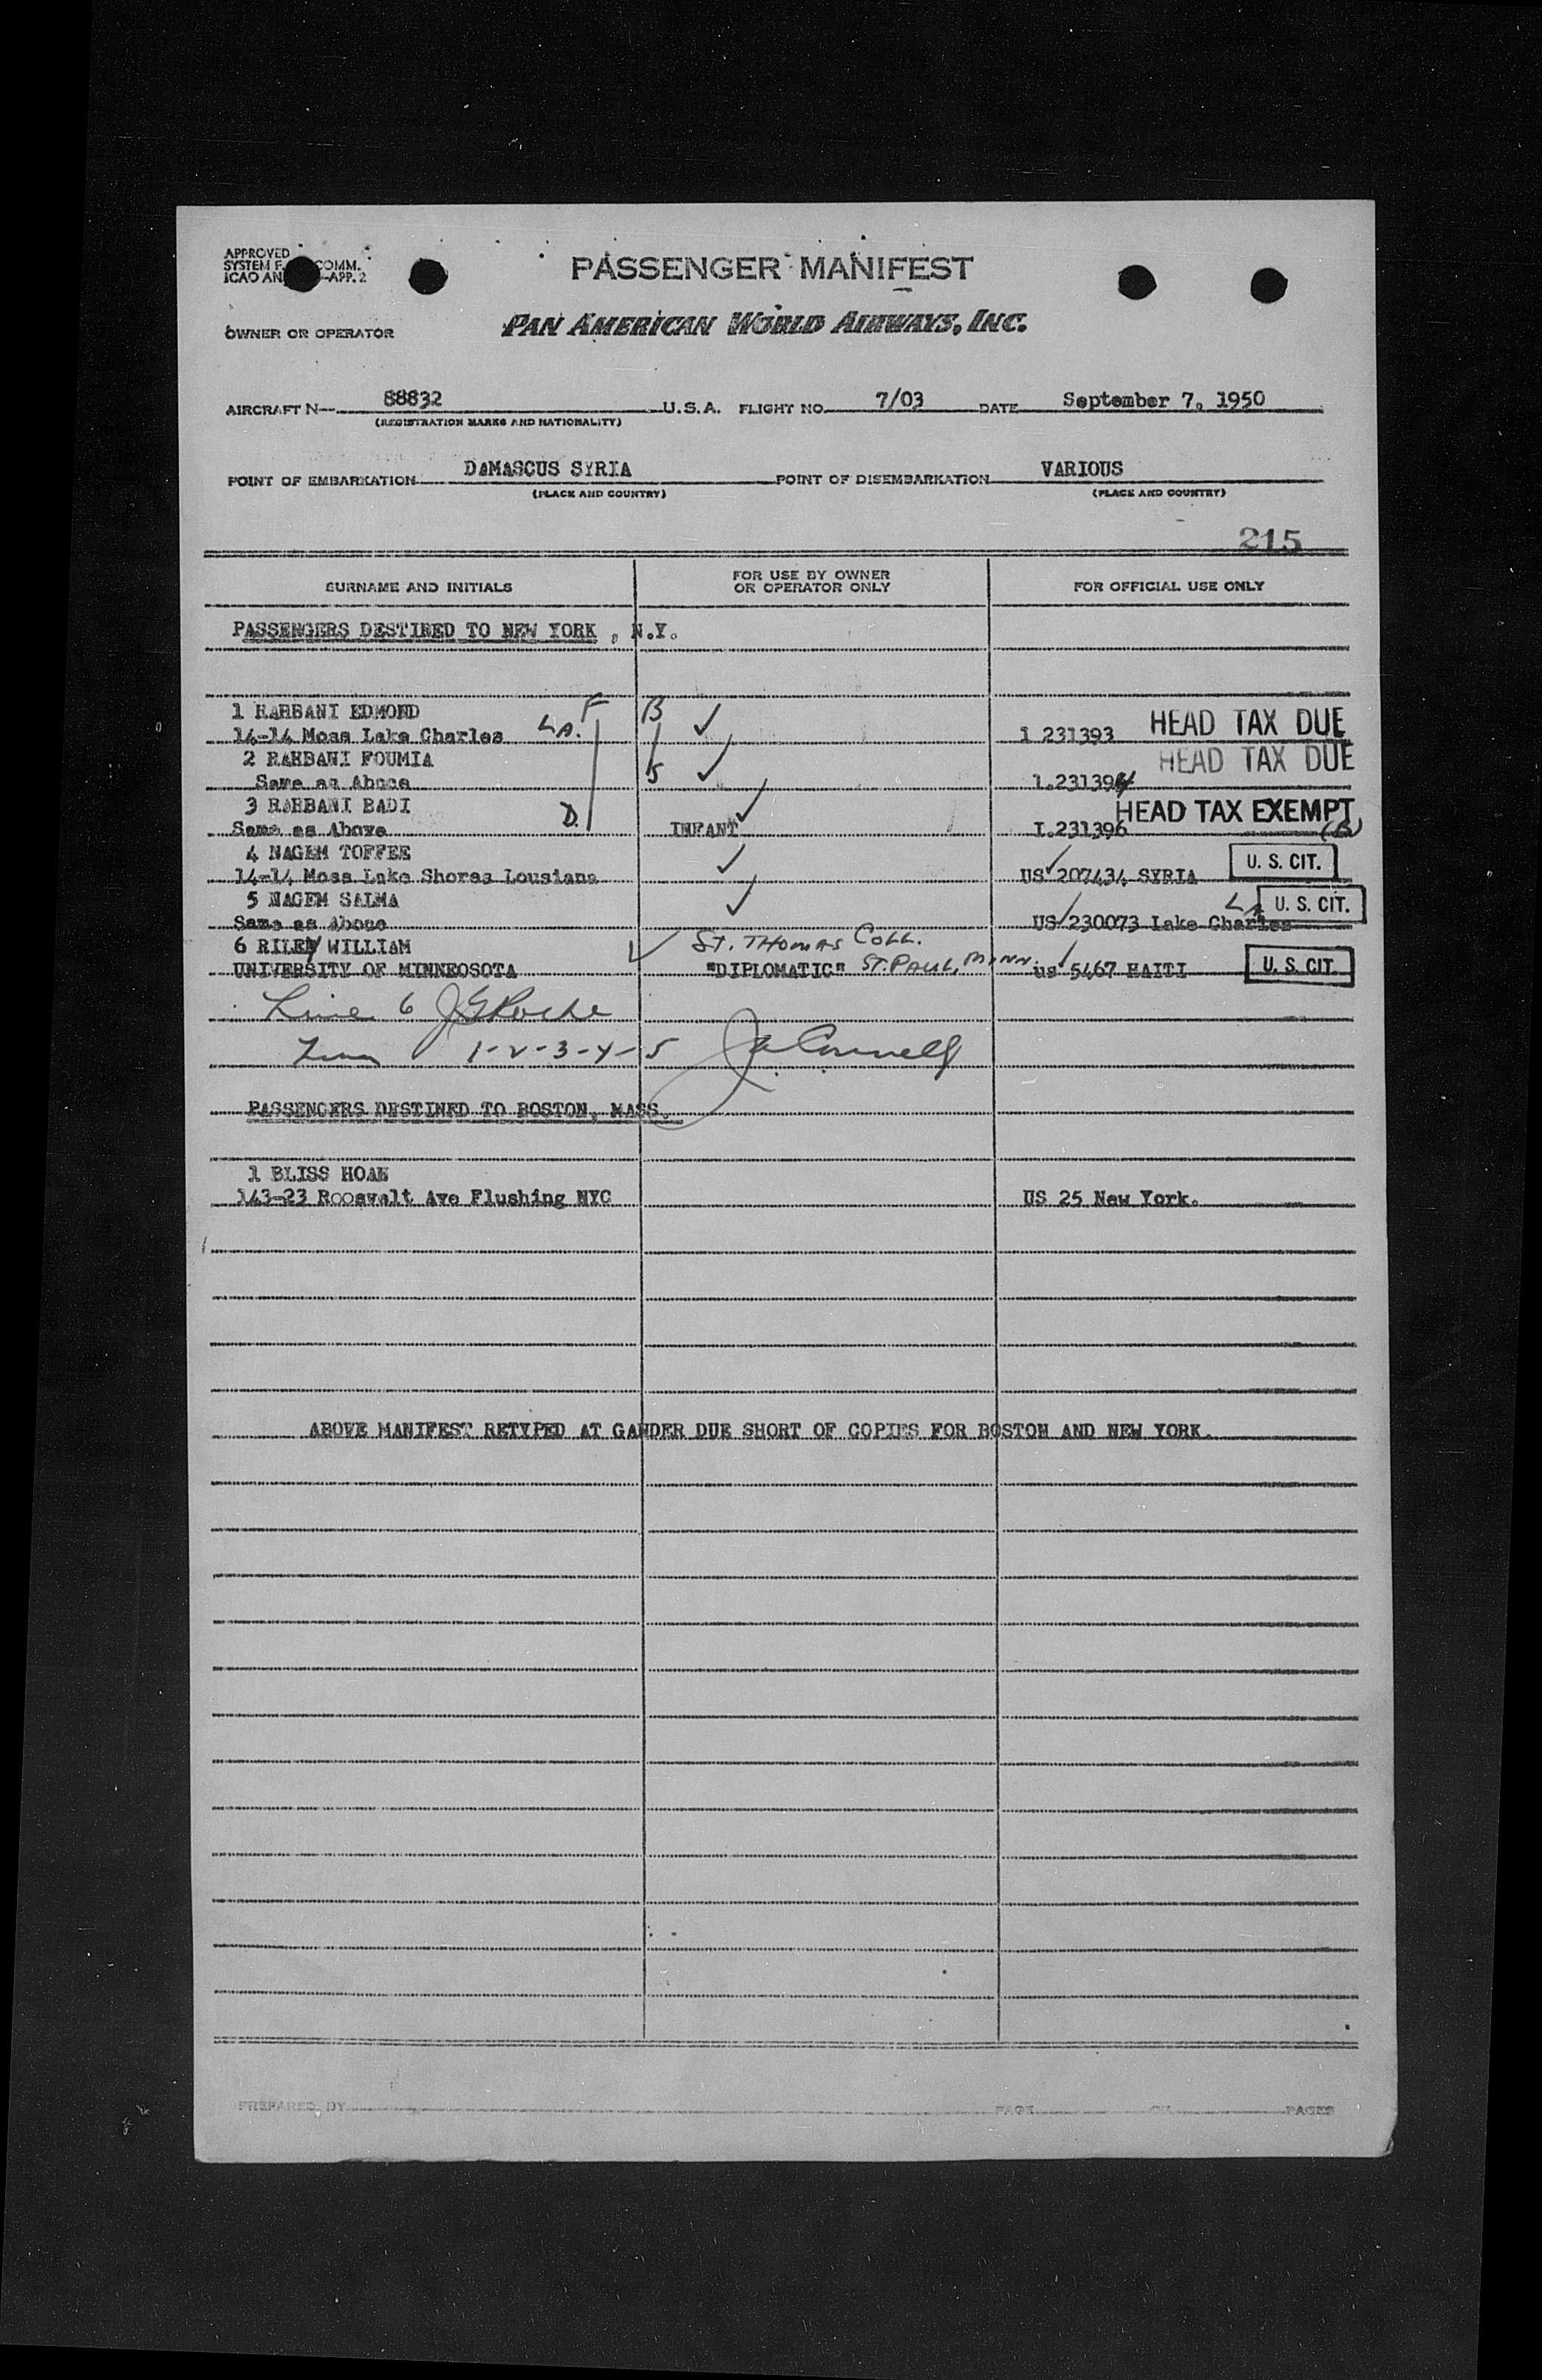 APPROVED
SYSTEM F. COMM.
ICAO AN -APP. 2
PASSENGER MANIFEST
OWNER OR OPERATOR
PAN AMERICAN WORLD AIRWAYS, INC.
AIRCRAFT N- 88832 U.S.A. FLIGHT NO. 7/03 DATE September 7, 1950
(REGISTRATION MARKS AND NATIONALITY)
POINT OF EMBARKATION DAMASCUS SYRIA POINT OF DISEMBARKATION VARIOUS
(PLACE AND COUNTRY) (PLACE AND COUNTRY)
215
SURNAME AND INITIALS FOR USE BY OWNER OR OPERATOR ONLY FOR OFFICIAL USE ONLY
PASSENGERS DESTINED TO NEW YORK , N.Y.
1 RAHBANI EDMOND F B
14-14 Moss Lake Charles LA. 1 231393 HEAD TAX DUE
2 RAHBANI FOUMIA HEAD TAX DUE
Same as Above 5 1.231394
3 RAHBANI BADI D. HEAD TAX EXEMPT
Same as Above INFANT I.231396 (B)
4 NAGEM TOFFEE
14-14 Moss Lake Shores Lousiana US 207434 SYRIA U. S. CIT.
5 NAGEM SALMA
Same as Above US 230073 Lake Charles LA U. S. CIT.
6 RILEY WILLIAM ST. THOMAS COLL.
UNIVERSITY OF MINNEOSOTA "DIPLOMATIC" ST. PAUL, MINN. us 5467 HAITI U. S. CIT.
Line 6 JGRoche
Lines 1-2-3-4-5
PASSENGERS DESTINED TO BOSTON, MASS.
1 BLISS HOAN
143-23 Roosevalt Ave Flushing NYC US 25 New York.
ABOVE MANIFEST RETYPED AT GANDER DUE SHORT OF COPIES FOR BOSTON AND NEW YORK.
PREPARED BY PAGE OF PAGES